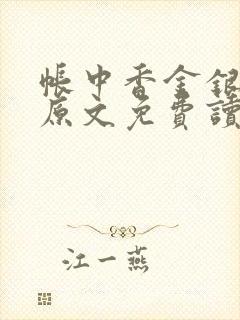 帳中香金銀
原文免費讀
江一燕